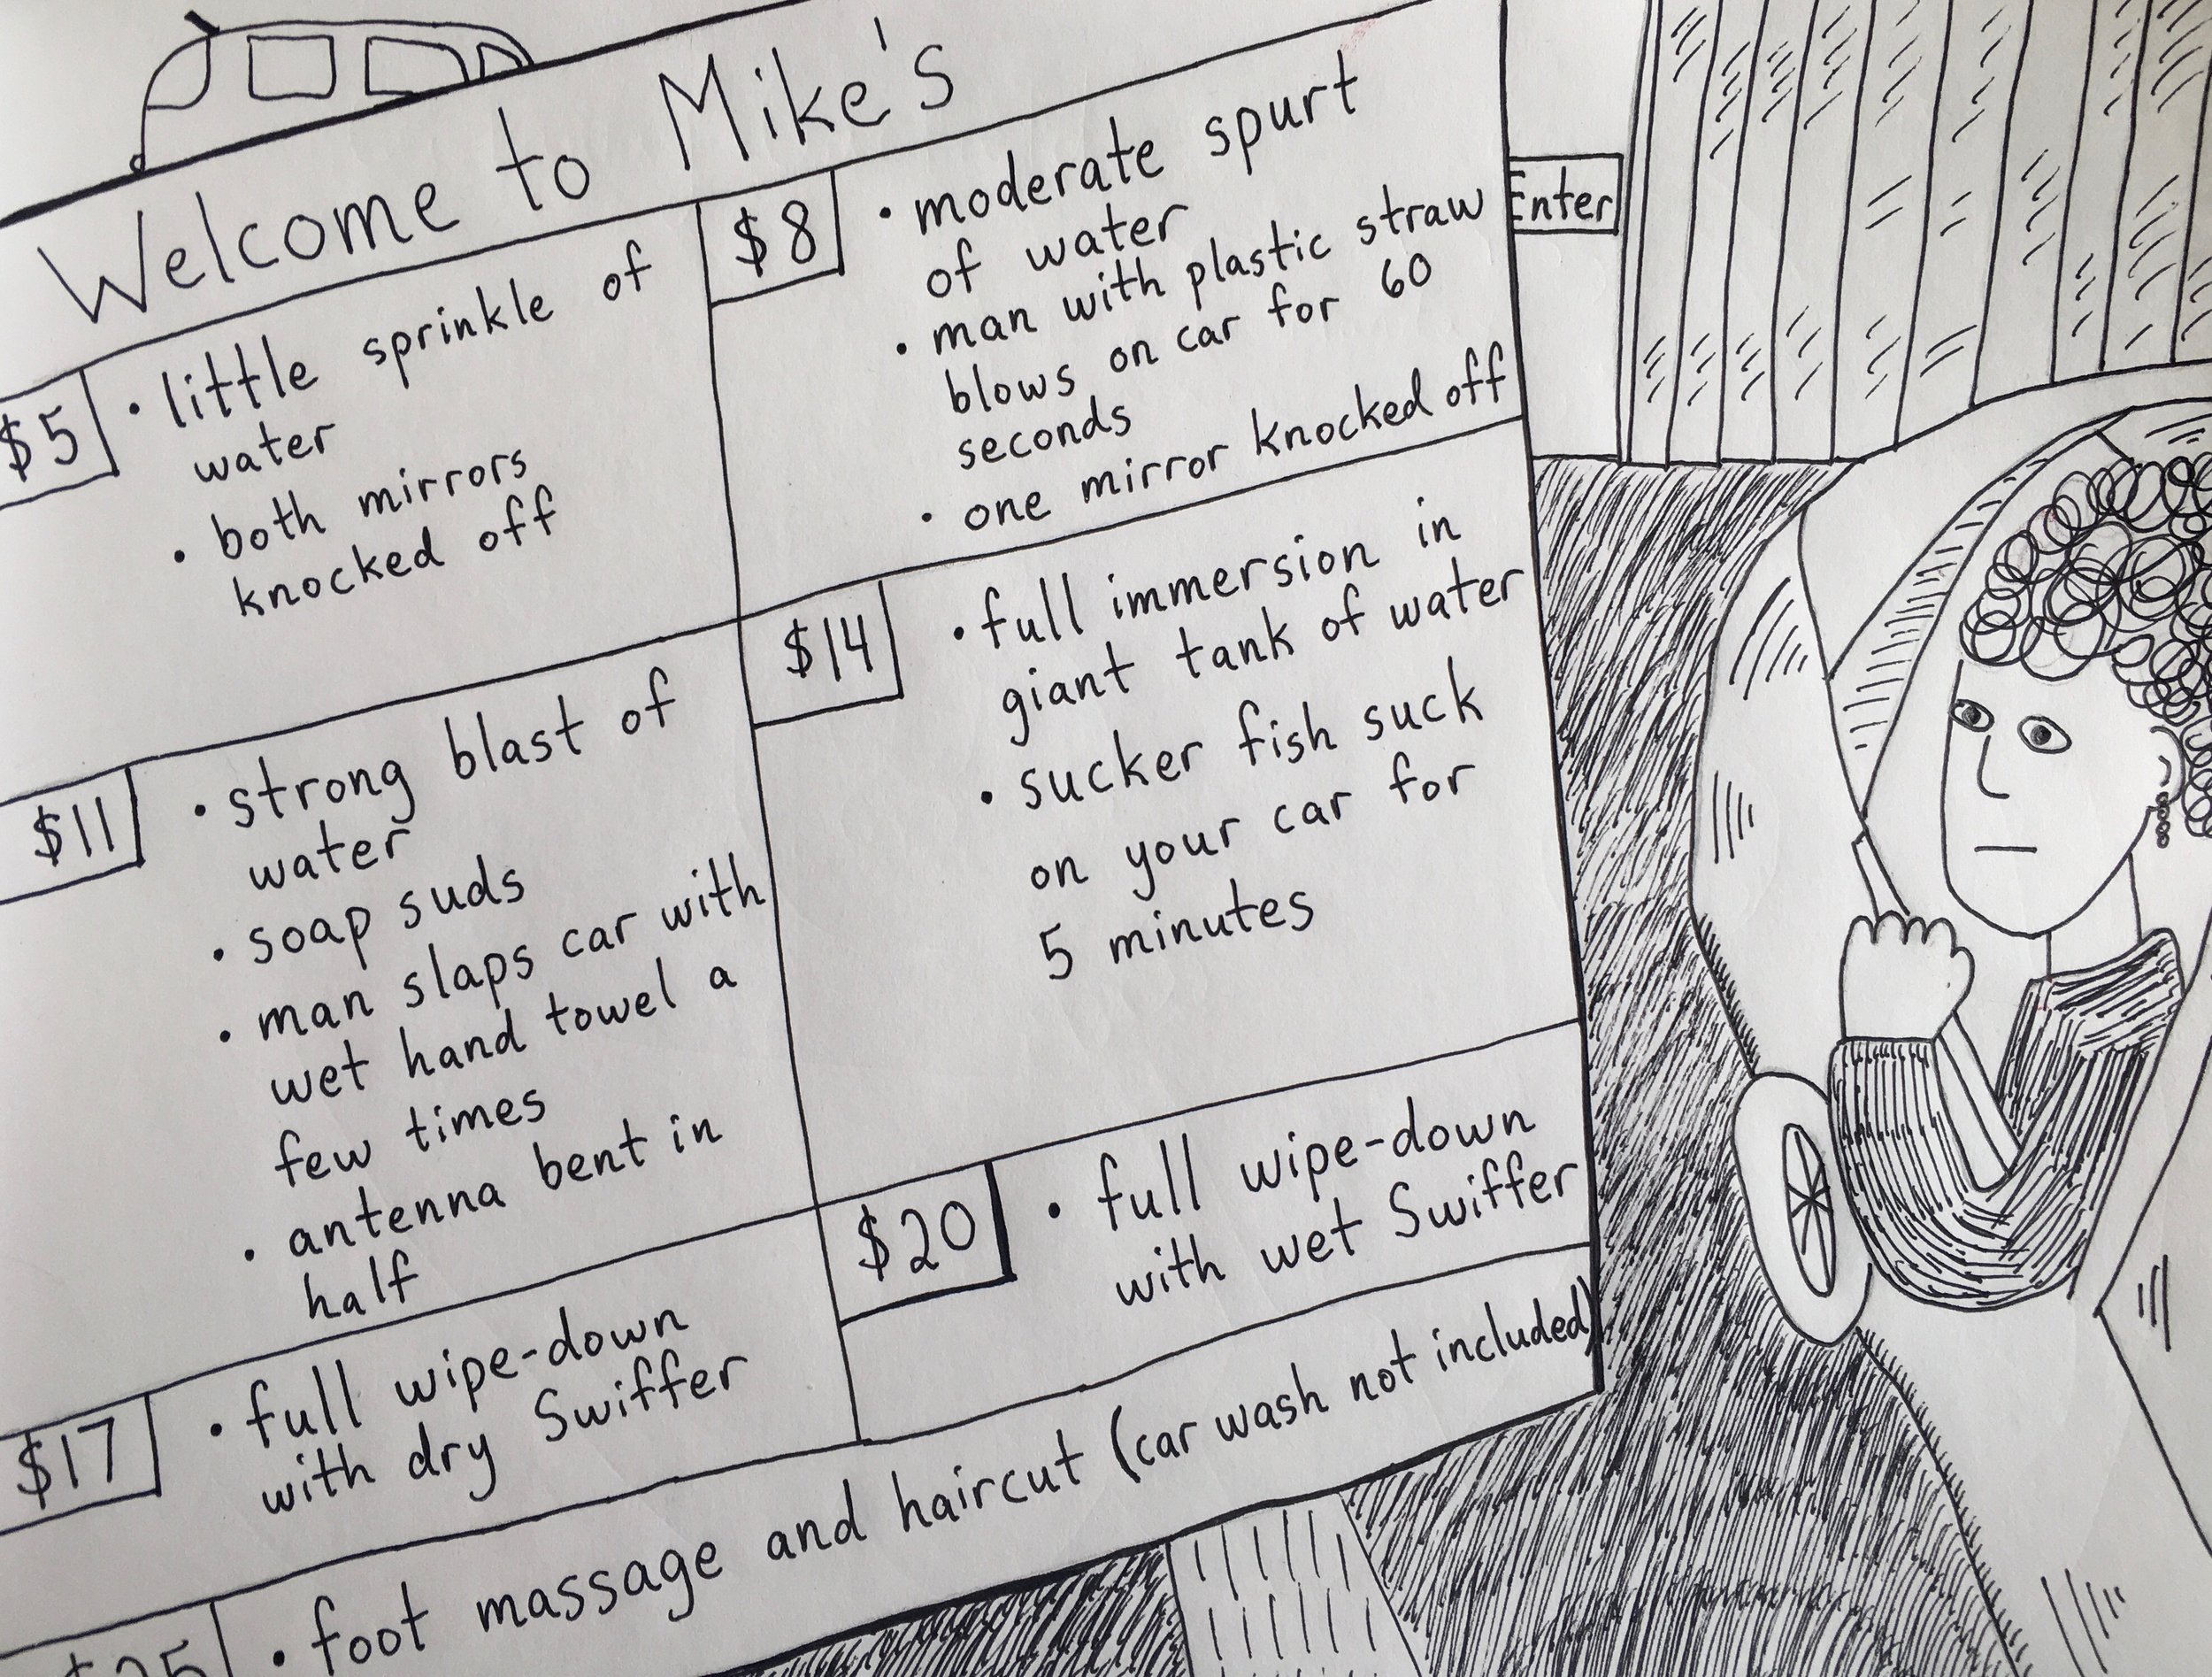 Welcome to Mike's
$5
• little sprinkle of
water
• both mirrors
knocked off
$8
• moderate spurt
of water
• man with plastic straw
blows on car for 60
seconds
• one mirror knocked off
$11
• strong blast of
water
• soap suds
• man slaps car with
wet hand towel a
few times
• antenna bent in
half
$14
• full immersion in
giant tank of water
• sucker fish suck
on your car for
5 minutes
$17
• full wipe-down
with dry Swiffer
$20
• full wipe-down
with wet Swiffer
$25
• foot massage and haircut (car wash not included)
Enter